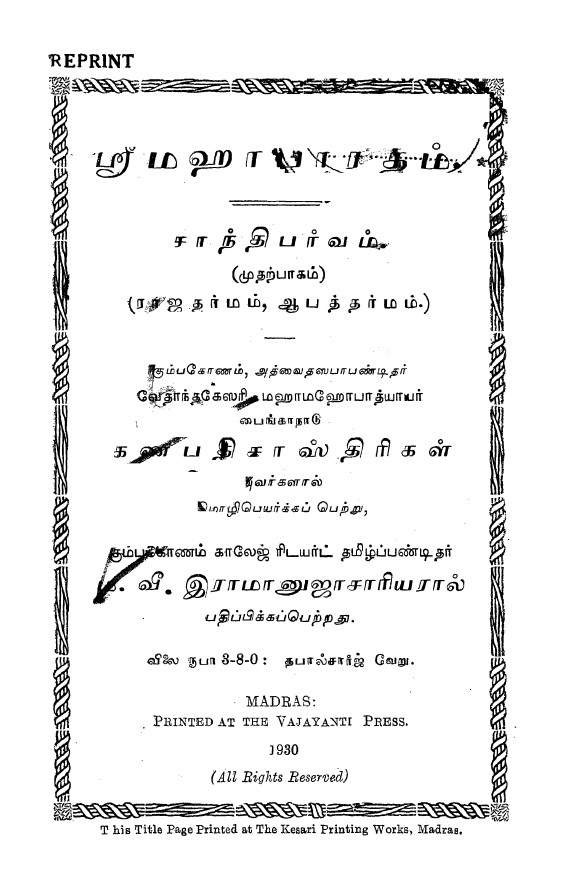 REPRINT
ஶ்ரீ மஹாபாரதம்.
சாந்திபர்வம்.
(முதற்பாகம்)
(ராஜதர்மம், ஆபத்தர்மம்.)
கும்பகோணம், அத்வைதஸபாபண்டிதர்
வேதாந்தகேஸரி மஹாமஹோபாத்யாயர்
பைங்காநாடு
கணபதிசாஸ்திரிகள்
அவர்களால்
மொழிபெயர்க்கப் பெற்று,
கும்பகோணம் காலேஜ் ரிடயர்ட் தமிழ்ப்பண்டிதர்
வீ. இராமானுஜாசாரியரால்
பதிப்பிக்கப்பெற்றது.
விலை ரூபா 3-8-0: தபால்சார்ஜ் வேறு.
MADRAS:
PRINTED AT THE VAJAYANTI PRESS.
1930
(All Rights Reserved)
This Title Page Printed at The Kesari Printing Works, Madras.